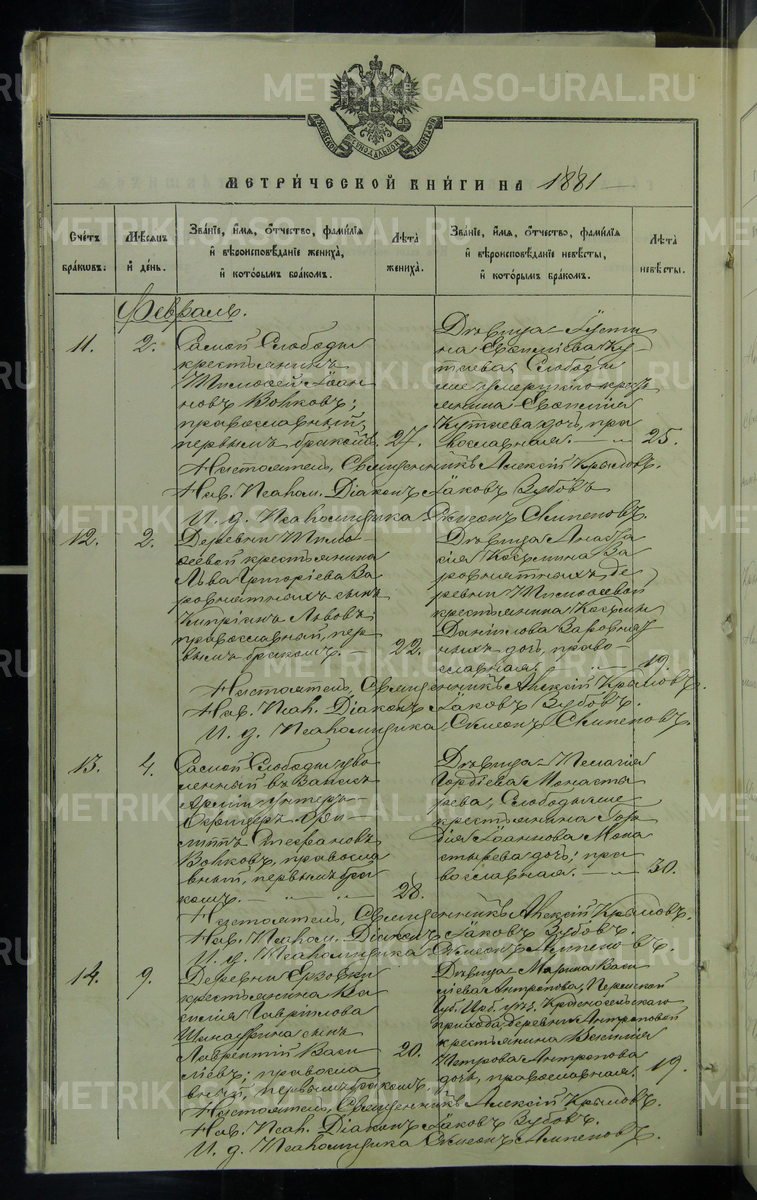 METRIKI.GASO-URAL.RU
МЕТРИ́ЧЕСКОЙ КНИ́ГИ НА 1881
Сче́тъ бра́ковъ.
Мѣ́сяцъ и́ де́нь.
Зва́нїе, и́мя, ѻ́тчество, фами́лїя и́ вѣроисповѣ́данїе жениха̀, и́ кото́рымъ бра́комъ.
Лѣ́та жениха̀.
Зва́нїе, и́мя, ѻ́тчество, фами́лїя и́ вѣроисповѣ́данїе невѣ́сты, и́ кото́рымъ бра́комъ.
Лѣ́та невѣ́сты.
Февраль.
11.
2.
Самой Слободы
крестьянинъ
Тимоѳей Іоан
новъ Волковъ;
православный,
первымъ бракомъ,
27.
Дѣвица Іусти
на Евѳиміева Ку
таева, Слободы
же умершаго крес
янина Евѳимія
Кутаева дочь, пра
вославная.
25.
Настоятель, Священникъ Алексій Крыловъ.
Нав. Псалом. Діаконъ Іаковъ Зубовъ
И. д. Псаломщика Симеонъ
12.
2.
Деревни Тимо
ѳеевой крестьянина
Льва Григоріева За
ровнятныхъ сынъ
Кипріанъ Львовъ;
православный, пер
вымъ бракомъ.
22.
Дѣвица Анаста
сія Космина За
ровнятныхъ, де
ревни Тимоѳеевой
крестьянина Космы
Даніилова Заровня
ныхъ дочь, право
славная.
19.
Настоятель, Священникъ Алексій Крыловъ.
Нав. Псал. Діаконъ Іаковъ Зубовъ.
И. д. Псаломщика, Симеонъ
13.
4.
Самой Слободы уво
ленный въ Запасъ
Арміи Унтеръ
Офицеръ
Стефановъ
Волковъ, правосла
вный, первымъ бра
комъ.
28.
Дѣвица Пелагія
Гордіева Монасты
рева, Слободы же
крестьянина Гор
дія Іоаннова Мона
стырева дочь; пра
вославная.
30.
Настоятель, Священникъ Алексій Крыловъ.
Нав. Псалом. Діаконъ Іаковъ Зубовъ.
И. д. Псаломщика Симеонъ
14.
9.
Деревни Ерзовки
крестьянина Ва
силія Гаврилова
сынъ
Лаврентій Васи
ліевъ; правосла
вный, первымъ бракомъ,
20.
Дѣвица Марина Васи
ліева Антропова, Пермской
Губ. Ирб. уѣз. Красносельскаго
прихода, деревни Антроповой
крестьянина Василія
Петрова Антропова
дочь, православная.
19.
Настоятель, Священникъ Алексій Крыловъ.
Нав. Псал. Діаконъ Іаковъ Зубовъ.
И. д. Псаломщика Симеонъ